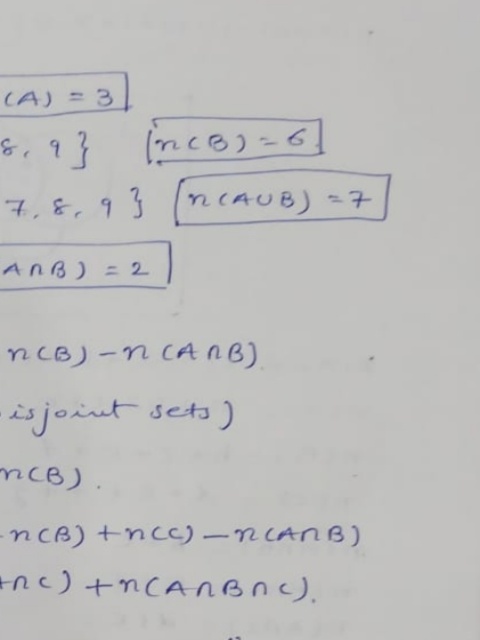 (A) = 3
8, 9} n(B) = 6
7, 8, 9} n(A∪B) = 7
A∩B) = 2
n(B) - n(A∩B)
isjoint sets)
n(B).
n(B) + n(C) - n(A∩B)
∩C) + n(A∩B∩C).